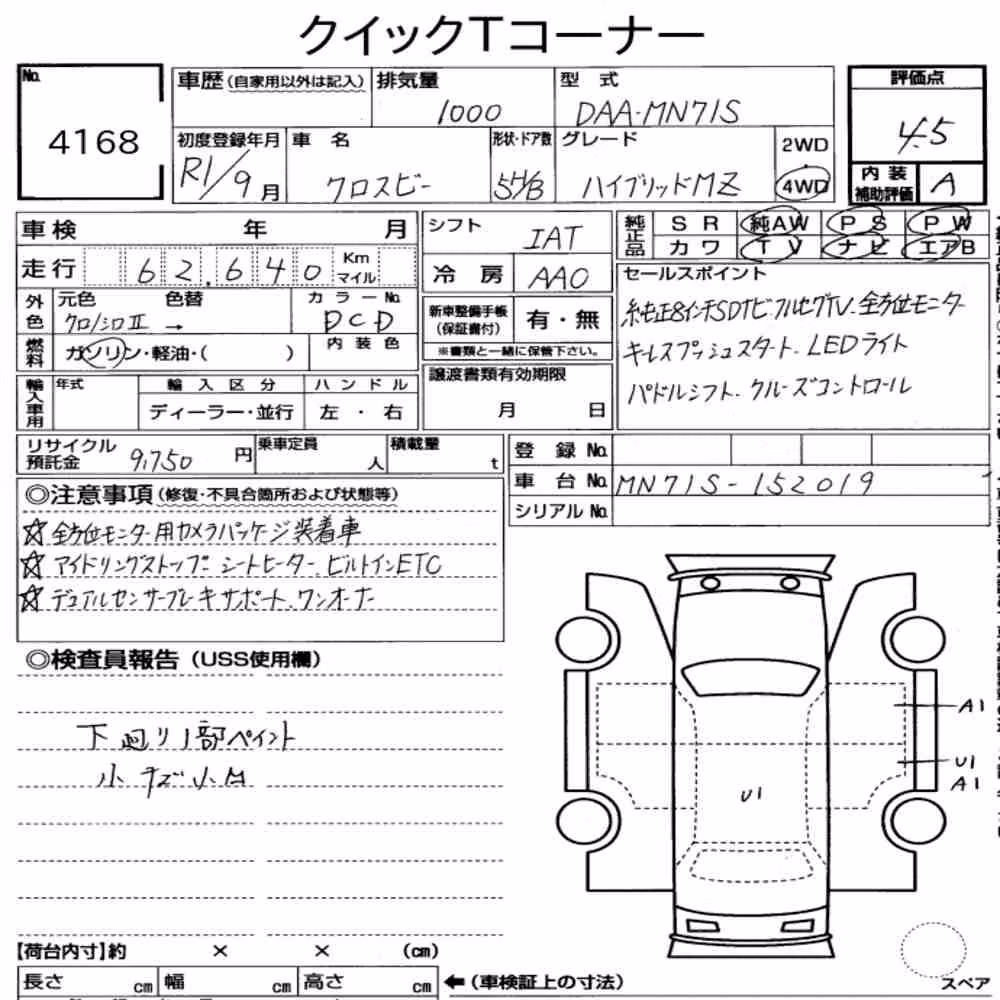 クイックTコーナー
No.
4168
車歴(自家用以外は記入)
排気量
1000
型 式
DAA-MN71S
評価点
4.5
初度登録年月
R1/9月
車 名
クロスビー
形状・ドア数
5H/B
グレード
ハイブリッドMZ
2WD
4WD
内 装
補助評価
A
車検 年 月
走行 62,640 Km
マイル
シフト
IAT
冷 房
AAC
純正品
SR 純AW PS PW
カワ TV ナビ エアB
セールスポイント
純正8インチSDナビ.フルセグTV.全方位モニター
キーレスプッシュスタート.LEDライト
パドルシフト.クルーズコントロール
外色
元色 色替
クロ/シロⅡ →
カラーNo.
DCD
燃料
ガソリン・軽油・( )
内装色
新車整備手帳
(保証書付)
有・無
※書類と一緒に保管下さい。
輸入車用
年式
輸入区分
ディーラー・並行
ハンドル
左 ・右
譲渡書類有効期限
月 日
リサイクル
預託金
9,750 円
乗車定員
人
積載量
t
登 録 No.
車 台 No. MN71S-152019
シリアル No.
◎注意事項(修復・不具合箇所および状態等)
☆全方位モニター用カメラパッケージ装着車
☆アイドリングストップ.シートヒーター.ビルトインETC
☆デュアルセンサーブレーキサポート.ワンオーナー
◎検査員報告(USS使用欄)
下廻り1部ペイント
小キズ小凹
A1
U1
A1
U1
【荷台内寸】約 × × (cm)
長さ cm 幅 cm 高さ cm
←(車検証上の寸法)
スペア